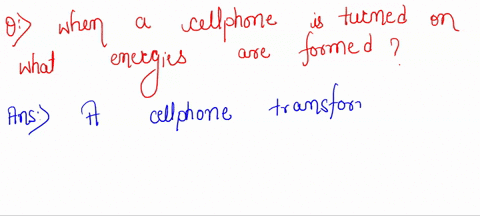 Q:> when a cellphone is turned on
what energies are formed?
Ans:> A cellphone transfor